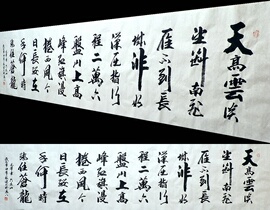 天高雲淡
望斷南飛
雁不到長
城非好
漢屈指行
程二萬六
盤山上高
峰紅旗漫
捲西風今
日長纓在
手何時
縛住蒼龍
天高雲淡
望斷南飛
雁不到長
城非好
漢屈指行
程二萬六
盤山上高
峰紅旗漫
捲西風今
日長纓在
手何時
縛住蒼龍